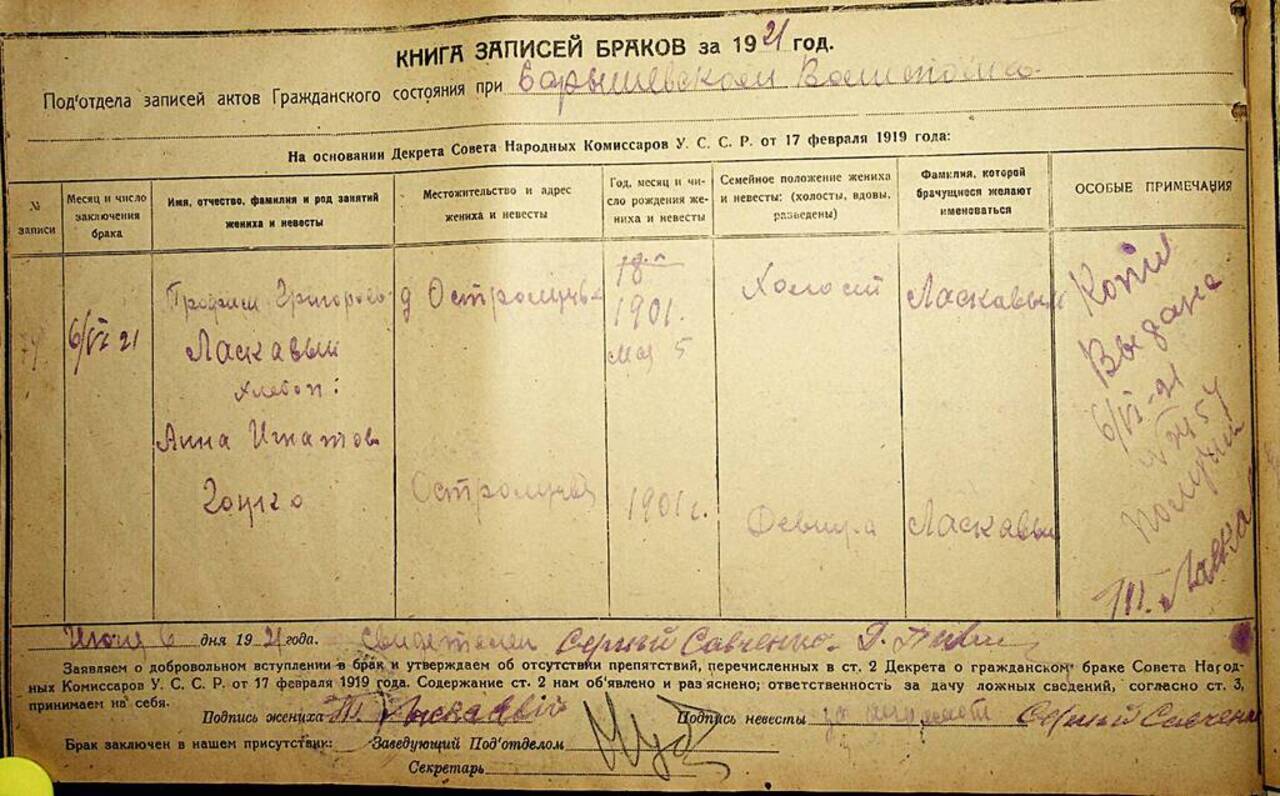 КНИГА ЗАПИСЕЙ БРАКОВ за 1921 год.
Под'отдела записей актов Гражданского состояния при Барышевском
На основании Декрета Совета Народных Комиссаров У. С. С. Р. от 17 февраля 1919 года:
№ записи
Месяц и число заключения брака
Имя, отчество, фамилия и род занятий жениха и невесты
Местожительство и адрес жениха и невесты
Год, месяц и число рождения жениха и невесты
Семейное положение жениха и невесты: (холосты, вдовы, разведены)
Фамилия, которой брачущиеся желают именоваться
ОСОБЫЕ ПРИМЕЧАНИЯ
6/VI 21
Трофим Григоров
Ласкавый
хлебоп:
Анна Игнатов
д Остролучье
Остролучья
18
1901.
Мая 5
1901 г.
Холост
Девица
Ласкавый
Ласкавы
Копия
Выдана
6/VI-21
Получил
Т. Ласка
Июня 6 дня 1921 года. свидетели Сергий Савченко.
Заявляем о добровольном вступлении в брак и утверждаем об отсутствии препятствий, перечисленных в ст. 2 Декрета о гражданском браке Совета Народ-
ных Комиссаров У. С. С. Р. от 17 февраля 1919 года. Содержание ст. 2 нам об'явлено и раз'яснено; ответственность за дачу ложных сведений, согласно ст. 3,
принимаем на себя.
Подпись жениха Т. Ласкавый Подпись невесты за Сергий Савченк
Брак заключен в нашем присутствии: Заведующий Под'отделом
Секретарь